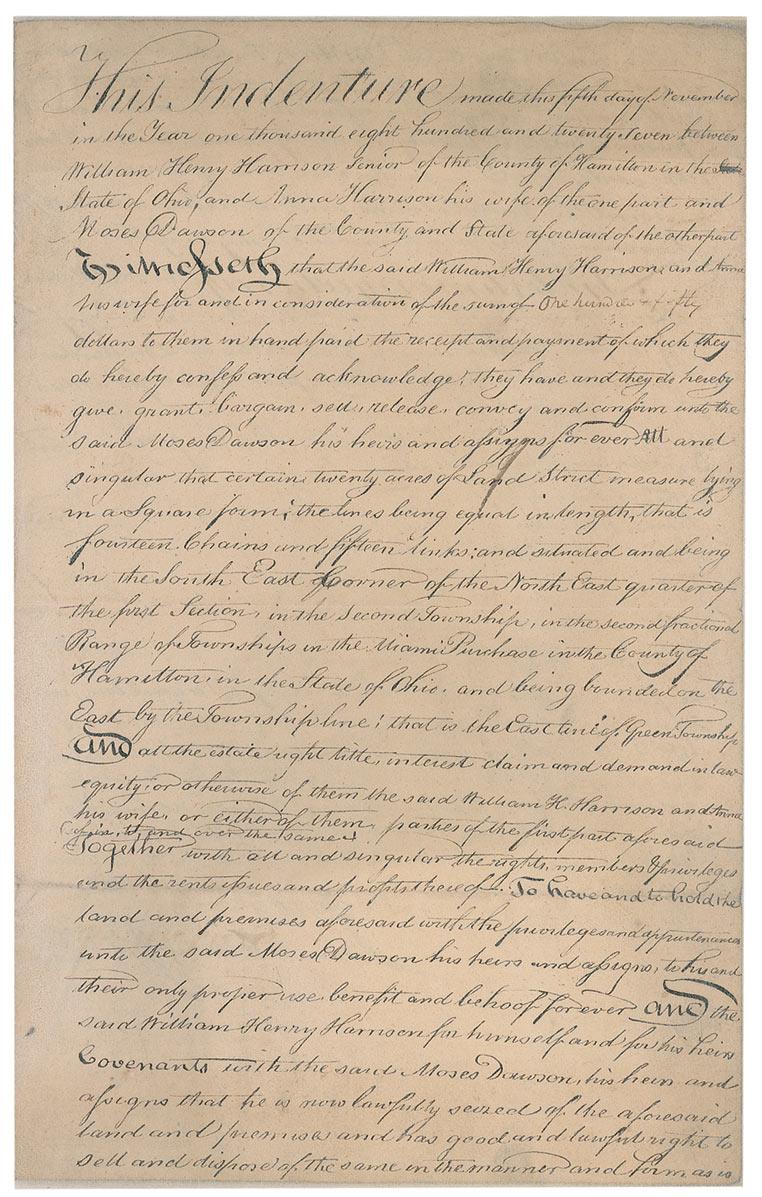 This Indenture made this fifth day of November
in the Year one thousand eight hundred and twenty seven between
William Henry Harrison Senior of the County of Hamilton in the
State of Ohio, and Anna Harrison his wife of the one part and
Moses Dawson of the County and State aforesaid of the other part
Witnesseth that the said William Henry Harrison and Anna
his wife for and in consideration of the sum of One hundred & fifty
dollars to them in hand paid the receipt and payment of which they
do hereby confess and acknowledge, they have and they do hereby
give, grant, bargain, sell, release, convey and confirm unto the
said Moses Dawson his heirs and assigns for ever All and
singular that certain twenty acres of Land Strict measure lying
in a Square form; the lines being equal in length, that is
fourteen Chains and fifteen links: and situated and being
in the South East Corner of the North East quarter of
the first Section, in the Second Township, in the second fractional
Range of Townships in the Miami Purchase in the County of
Hamilton, in the State of Ohio, and being bounded on the
East by the Township line; that is the East line of Green Township
And all the estate right title, interest claim and demand in law
equity, or otherwise of them the said William H. Harrison and Anna
his wife, or either of them, parties of the first part aforesaid
of in, to, and over the same,
Together with all and singular the rights, members & privileges
and the rents issues and profits thereof. To have and to hold the
land and premises aforesaid with the privileges and appurtenances
unto the said Moses Dawson his heirs and assigns, to his and
their only proper use, benefit and behoof for ever And the
said William Henry Harrison for himself and for his heirs
Covenants with the said Moses Dawson, his heirs and
assigns that he is now lawfully seized of the aforesaid
land and premises and has good and lawful right to
sell and dispose of the same in the manner and form as is